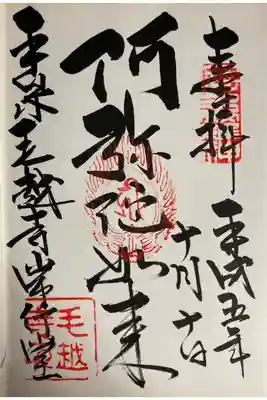 奉拝
平成五年
十月十日
阿弥陀如来
平泉毛越寺常行堂
毛越寺